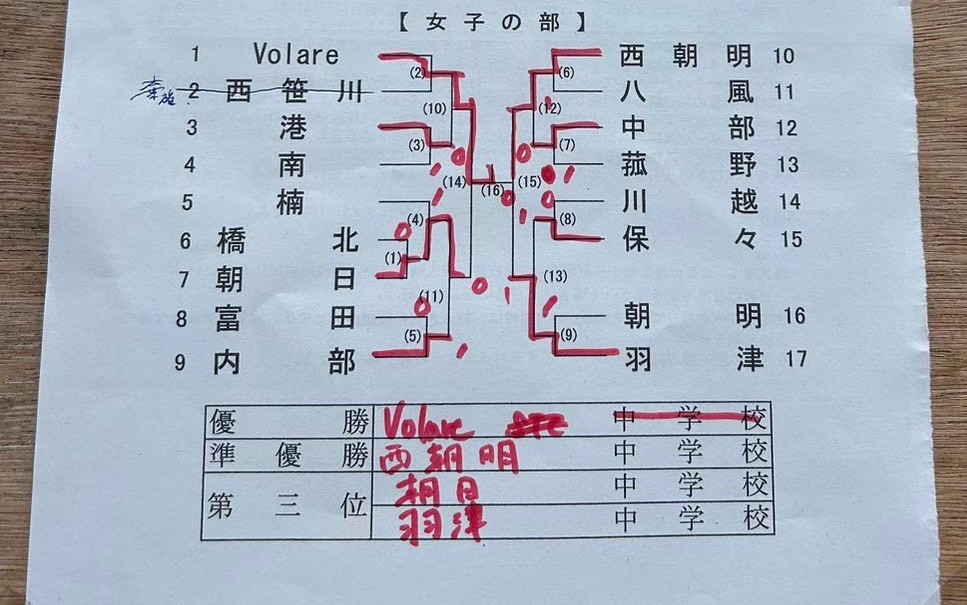 【 女 子 の 部 】
1 Volare
棄権 2 西 笹 川
3 港
4 南
5 楠
6 橋 北
7 朝 日
8 富 田
9 内 部
西 朝 明 10
八 風 11
中 部 12
菰 野 13
川 越 14
保 々 15
朝 明 16
羽 津 17
(2)
(10)
(3)
(14)
(4)
(1)
(11)
(5)
(16)
(6)
(12)
(7)
(15)
(8)
(13)
(9)
優 勝 Volare 中 学 校
準 優 勝 西朝明 中 学 校
第 三 位 朝日 中 学 校
羽津 中 学 校